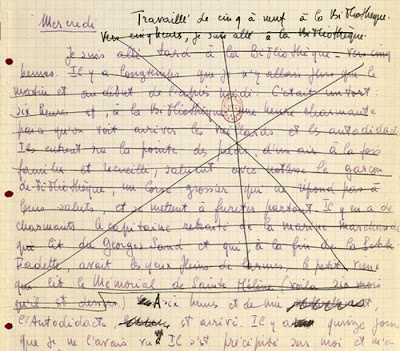 Mercredi
Travaillé de cinq à neuf à la Bibliothèque.
Vers cinq heures, je suis allé à la Bibliothèque.
Je suis allé tard à la bibliothèque - vers cinq
heures. Il y a longtemps que je n'y allais plus que le
matin et au début de l'après midi. C'était un tort.
six heures est, à la Bibliothèque, une heure charmante
parce qu'on voit arriver les vieillards et les autodidactes.
Ils entrent sur la pointe des pieds, d'un air à la fois
familier et recueilli, saluent avec noblesse le garçon
de Bibliothèque, un Corse grossier qui ne répond pas à
leurs saluts, et se mettent à fureter partout. Il y en a de
charmants le capitaine retraité de la marine marchande
qui lit du Georges Sand et qui à la fin de la Petite
Fadette, avait les yeux pleins de larmes. le petit vieux
qui lit le Mémorial de Sainte Hélène (voilà six mois
qu'il est dessus). A heures et demie
l'Autodidacte est arrivé. Il y a quinze jours
que je ne l'avais vu. Il s'est précipité sur moi et m'a